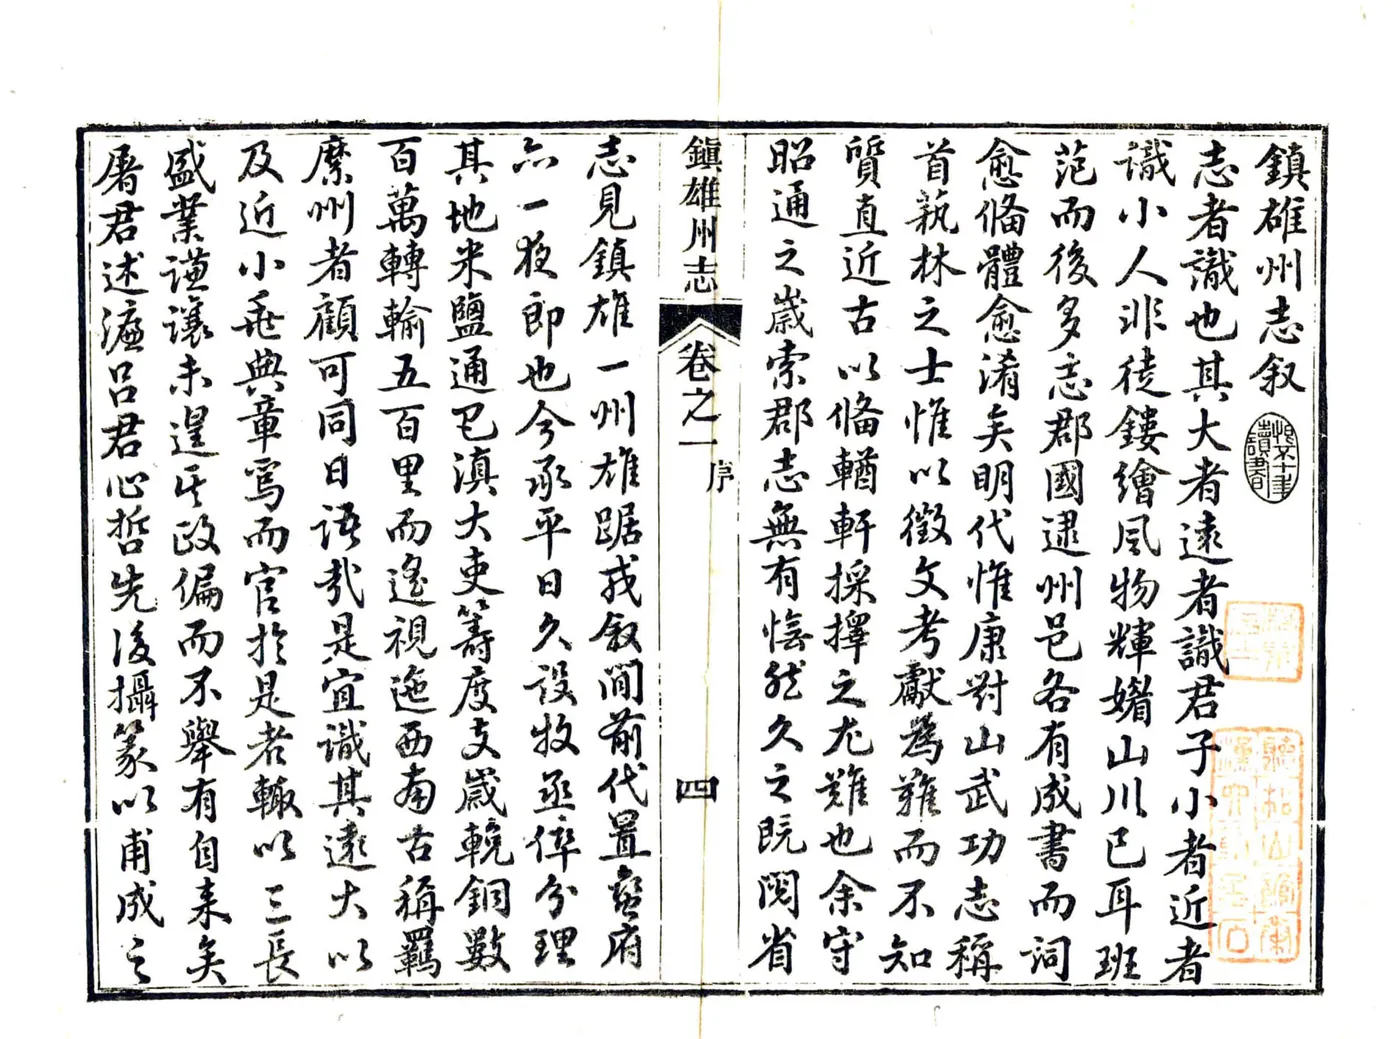 鎮雄州志叙
志者識也其大者遠者識君子小者近者
識小人非徒鏤繪風物輝媚山川已耳班
范而後多志郡國逮州邑各有成書而詞
愈俻體愈淆矣明代惟康對山武功志稱
首蓺林之士惟以徵文考獻爲難而不知
質直近古以俻輶軒採擇之尤難也余守
昭通之歲索郡志無有悵然久之既閱省
鎮雄州志
卷之一
序
四
志見鎮雄一州雄踞戎叙間前代置蠻府
亦一夜郎也今承平日久設牧丞倅分理
其地米鹽通巴滇大吏籌度支歲輓銅數
百萬轉輸五百里而遙視迤西南古稱羈
縻州者顧可同日語哉是宜識其遠大以
及近小垂典章焉而官於是者輙以三長
盛業謙讓未遑以政偏而不舉有自来矣
屠君述濂呂君心哲先後攝篆以甫成之
讀書